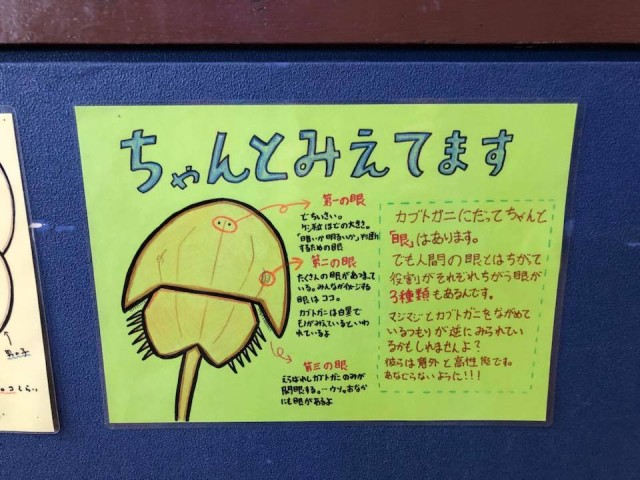 ちゃんとみえてます
第一の眼
でらいさい。
ケシ粒ほどの大きさ。
「暗いか明るいか」判断
するための眼
第二の眼
たくさんの眼があつまって
いる。みんながイメージする
眼はココ。
カブトガニは白黒で
ものがみえているといわ
れているよ
第三の眼
えらばれしカブトガニのみが
開眼する。…ウソ。おなか
にも眼があるよ
カブトガニにだってちゃんと
「眼」はあります。
でも人間の眼とはちがって
役割がそれぞれちがう眼が
3種類もあるんです。
マジマジとカブトガニをながめて
いるつもりが逆にみられてい
るかもしれませんよ?
彼らは意外と高性能です。
あなどらないように!!!
男の子